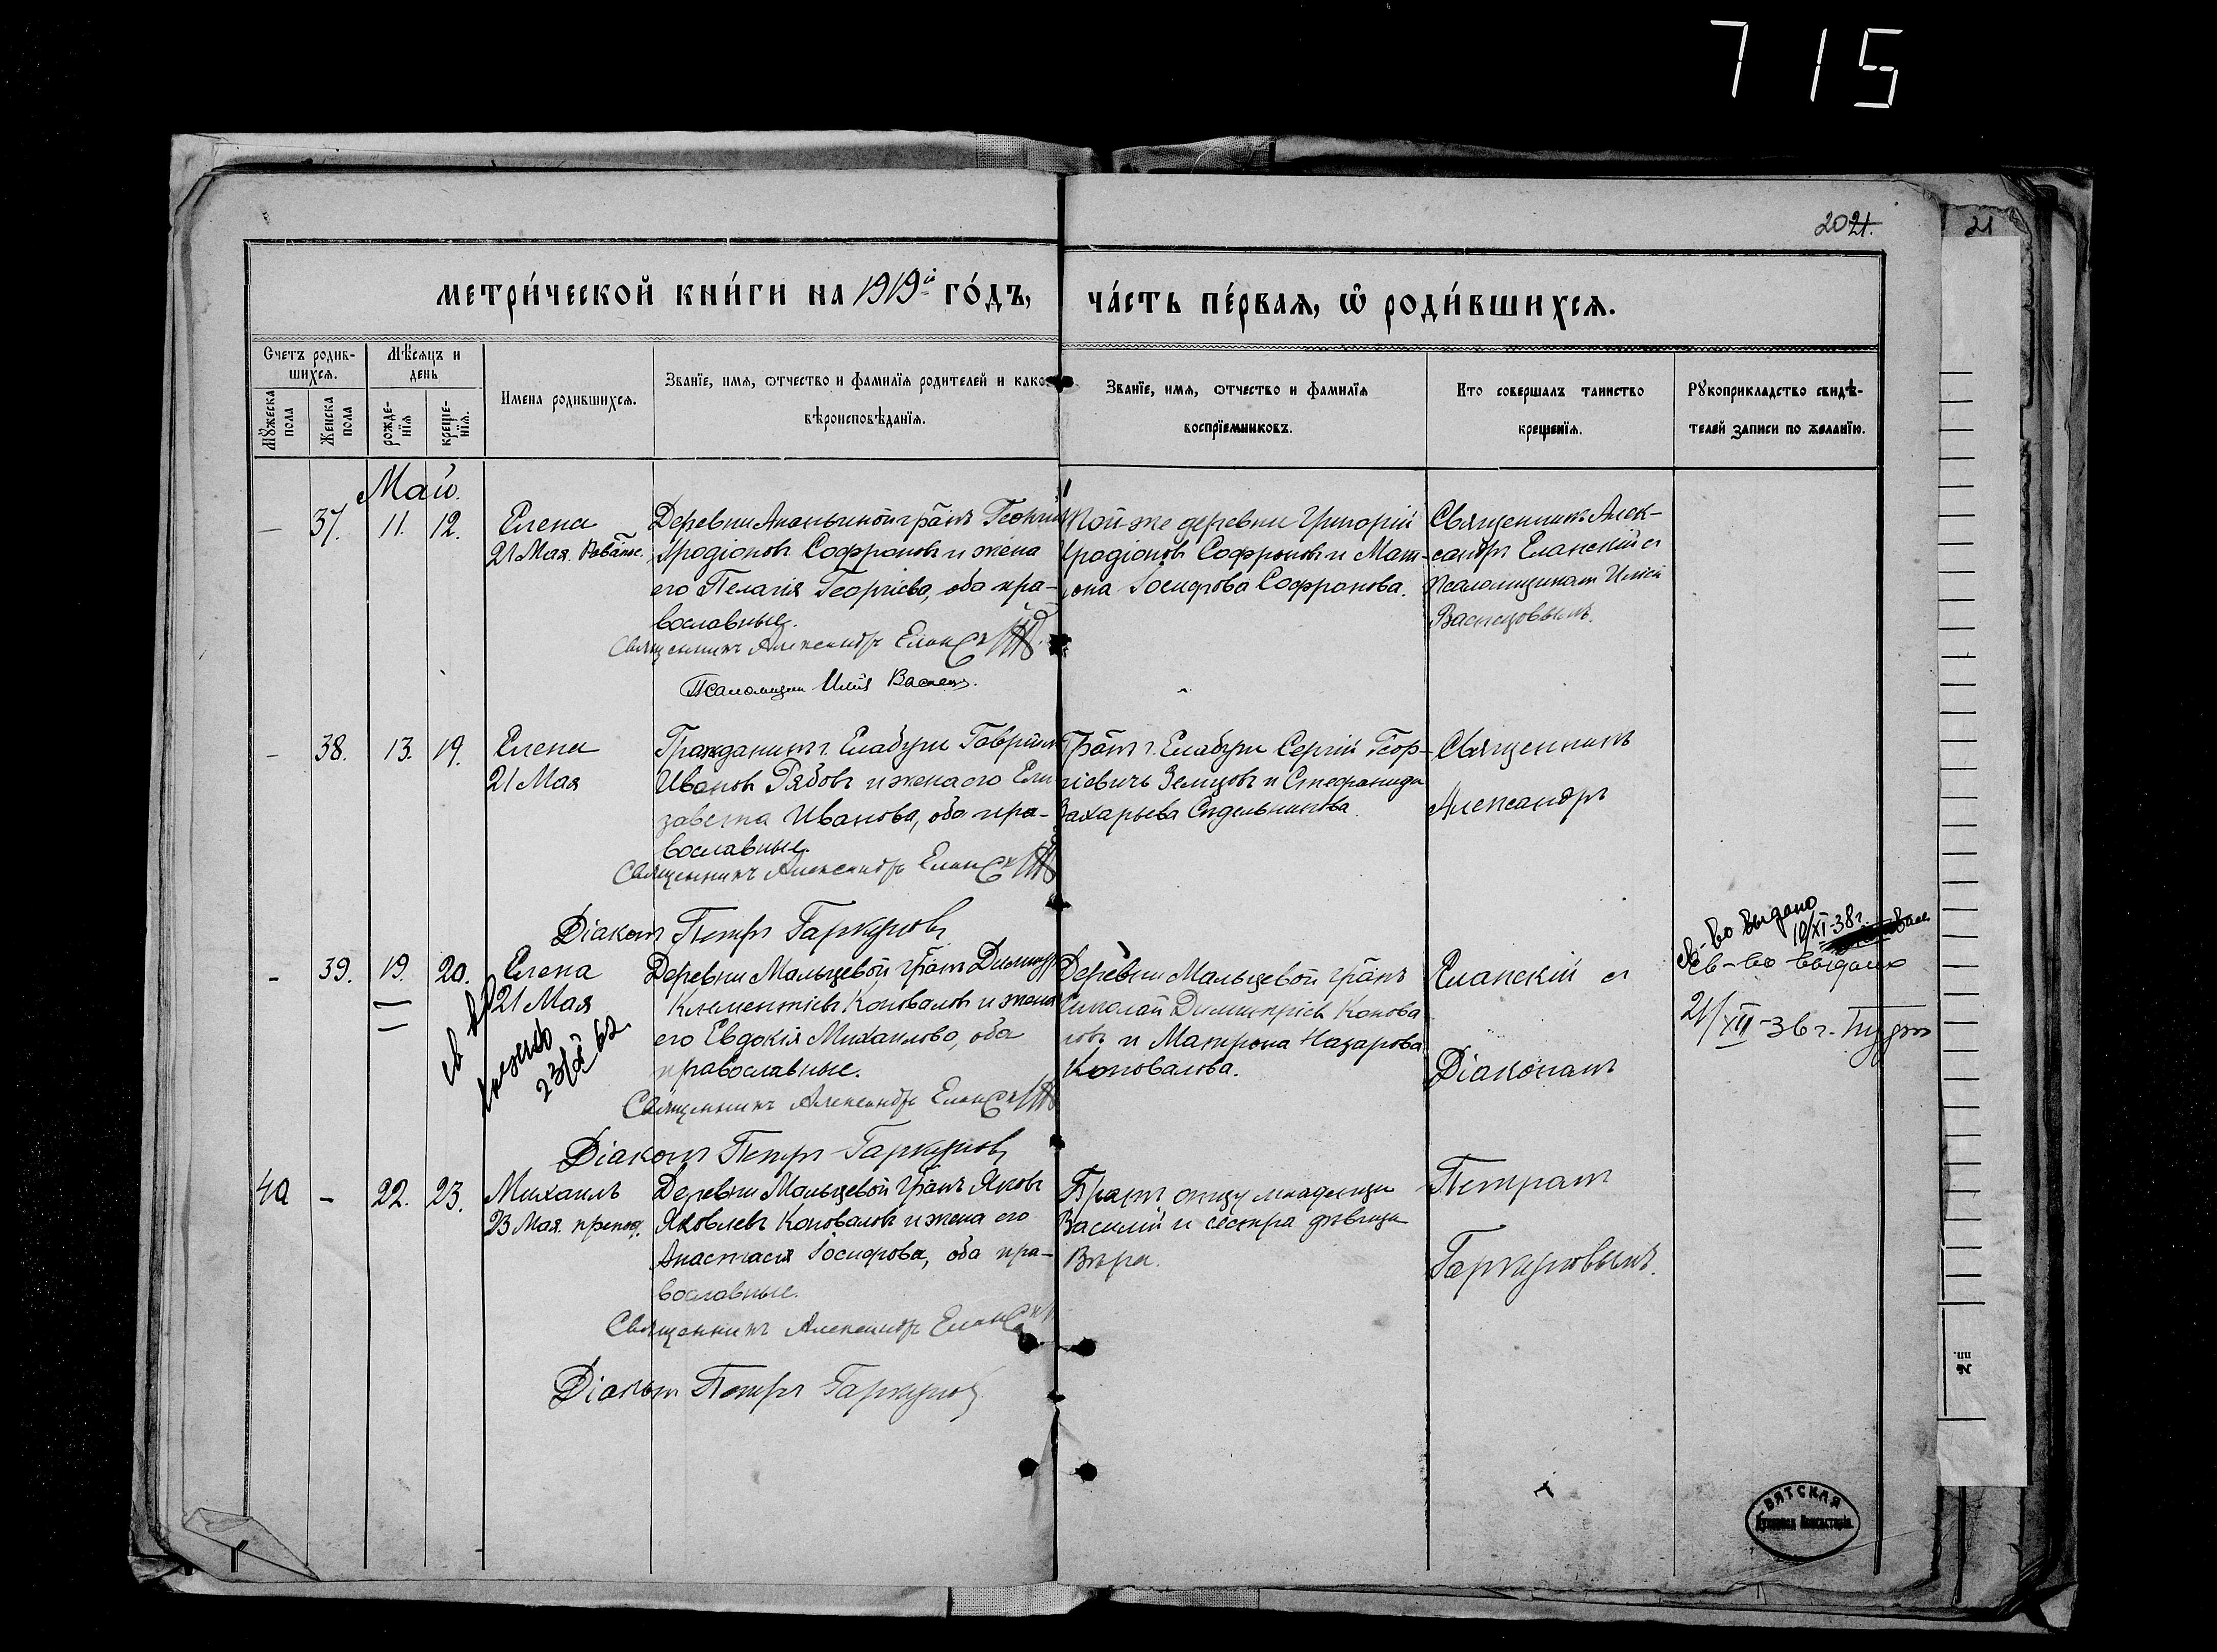 715
2021.
21
метри́ческой кни́ги на 1919й го́дъ, ча́сть пе́рвая, ѡ҆ роди́вшихсѧ.
Счетъ родившихсѧ.
Мꙋжеска пола
Женска пола
Мѣсяцъ и день
рожденїѧ
крещенїѧ.
Имена родившихсѧ.
Званїе, имѧ, ѿчество и фамилїѧ родителей и како
вѣроисповѣданїѧ.
Званїе, имѧ, ѿчество и фамилїѧ
воспрїемниковъ.
Кто совершалъ таинство
крещенїѧ.
Рꙋкоприкладство свидѣ-
телей записи по желанїю.
Май.
— 37. 11. 12. Елена
21 Мая.
Деревни Ананьиной грān Георгій
Иродіоновъ Софроновъ и жена
его Пелагія Георгіева, оба пра-
вославные.
Священникъ Александръ Еланск
Псаломщикъ Илія Васнец
Той-же деревни Григорій
Иродіоновъ Софроновъ и Мат-
рона Іосифова Софронова.
Священникъ Алек-
сандръ Еланскій съ
Псаломщикомъ Иліей
Васнецовымъ.
— 38. 13. 19. Елена
21 Мая
Гражданинъ г. Елабуги Гавріилъ
Ивановъ Рябовъ и жена его Ели
завета Иванова, оба пра-
вославные.
Священникъ Александръ Еланск
Діаконъ Петръ Гаркуновъ
г. Елабуги Сергій Геор-
гіевичъ Земцовъ и Стефанида
Захарьева Сидельникова.
Священникъ
Александръ
— 39. 19. 20. Елена
21 Мая
23/X 62.
Деревни Мальцевой Димитр
Клементіевъ Коноваловъ и жена
его Евдокія Михаилова, оба
православные.
Священникъ Александръ Еланск
Діаконъ Петръ Гаркуновъ
Деревни Мальцевой
Николай Димитріевъ Конова
ловъ и Матрона Назарова
Коновалова.
Еланскій съ
Діакономъ
св-во выдано
19/XI-38г.
св-во выдано
21/XII-36г.
40 — 22. 23. Михаилъ
23 Мая. препод.
Деревни Мальцевой Яковъ
Яковлевъ Коноваловъ и жена его
Анастасія Іосифова, оба пра-
вославные.
Священникъ Александръ Еланск
Діаконъ Петръ Гаркунов
Братъ отцу младенца
Василій и сестра девица
Вѣра.
Петромъ
Гаркуновымъ.
ВЯТСКАЯ
Духовная Консисторія.
№ пп.